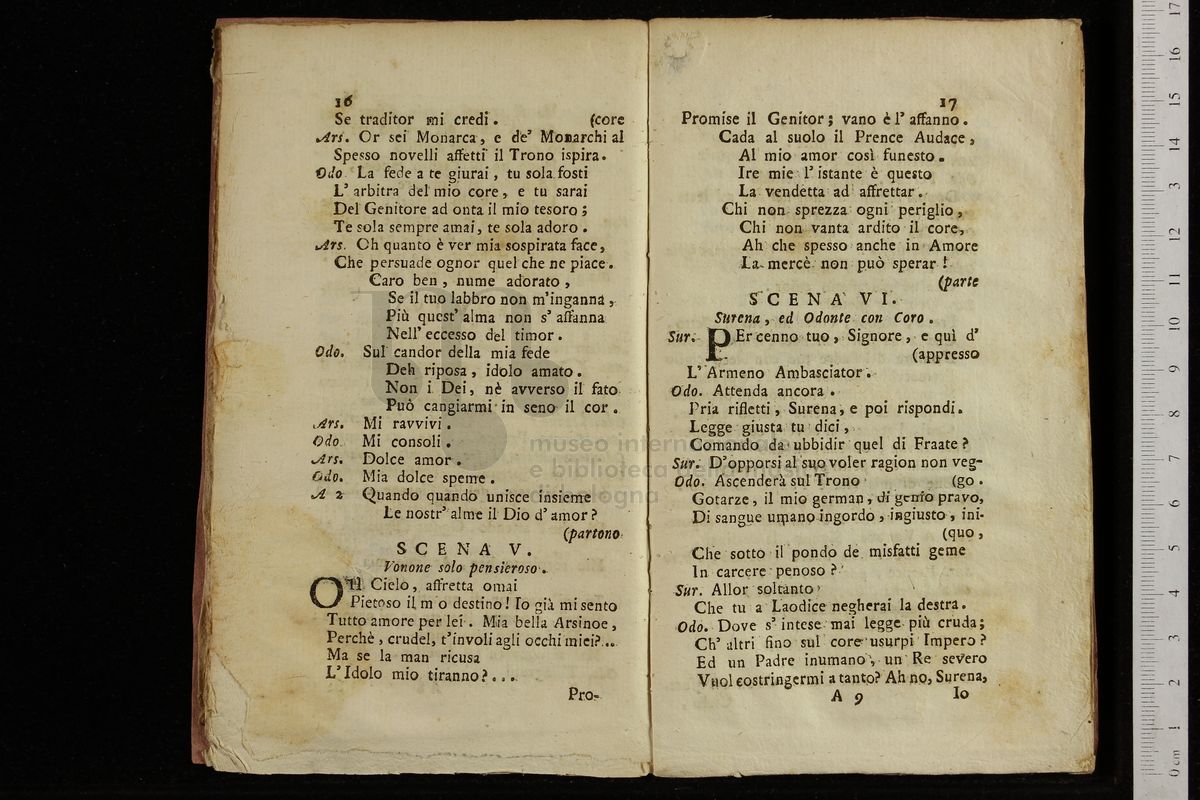 16
Se traditor mi credi. (core
Ars. Or sei Monarca, e de' Monarchi al
Spesso novelli affetti il Trono ispira.
Odo. La fede a te giurai, tu sola fosti
L' arbitra del mio core, e tu sarai
Del Genitore ad onta il mio tesoro;
Te sola sempre amai, te sola adoro.
Ars. Oh quanto è ver mia sospirata face,
Che persuade ognor quel che ne piace.
Caro ben, nume adorato,
Se il tuo labbro non m'inganna,
Più quest' alma non s' affanna
Nell' eccesso del timor.
Odo. Sul candor della mia fede
Deh riposa, idolo amato.
Non i Dei, nè avverso il fato
Può cangiarmi in seno il cor.
Ars. Mi ravvivi.
Odo. Mi consoli.
Ars. Dolce amor.
Odo. Mia dolce speme.
A 2 Quando quando unisce insieme
Le nostr' alme il Dio d' amor?
(partono
SCENA V.
Vonone solo pensieroso.
OH Cielo, affretta omai
Pietoso il m o destino! Io già mi sento
Tutto amore per lei. Mia bella Arsinoe,
Perchè, crudel, t'involi agli occhi miei?...
Ma se la man ricusa
L'Idolo mio tiranno?...
Pro-
17
Promise il Genitor; vano è l' affanno.
Cada al suolo il Prence Audace,
Al mio amor così funesto.
Ire mie l' istante è questo
La vendetta ad affrettar.
Chi non sprezza ogni periglio,
Chi non vanta ardito il core,
Ah che spesso anche in Amore
La mercè non può sperar!
(parte
SCENA VI.
Surena, ed Odonte con Coro.
Sur. PEr cenno tuo, Signore, e quì d'
(appresso
L' Armeno Ambasciator.
Odo. Attenda ancora.
Pria rifletti, Surena, e poi rispondi.
Legge giusta tu dici,
Comando da ubbidir quel di Fraate?
Sur. D'opporsi al suo voler ragion non veg-
Odo. Ascenderà sul Trono (go.
Gotarze, il mio german, di genio pravo,
Di sangue umano ingordo, ingiusto, ini-
(quo,
Che sotto il pondo de misfatti geme
In carcere penoso?
Sur. Allor soltanto
Che tu a Laodice negherai la destra.
Odo. Dove s' intese mai legge più cruda;
Ch' altri fino sul core usurpi Impero?
Ed un Padre inumano, un Re severo
Vuol costringermi a tanto? Ah no, Surena,
A 9 Io
museo internazionale
e biblioteca della musica
di bologna
0 cm 1 2 3 4 5 6 7 8 9 10 11 12 13 14 15 16 17